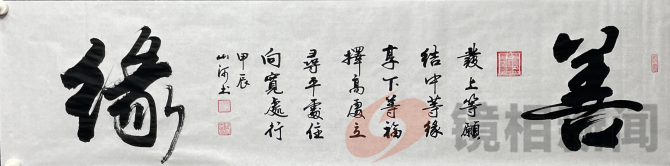 善
發上等願
結中等緣
享下等福
擇高處立
尋平處住
向寬處行
甲辰
山河书
緣
镜相新闻